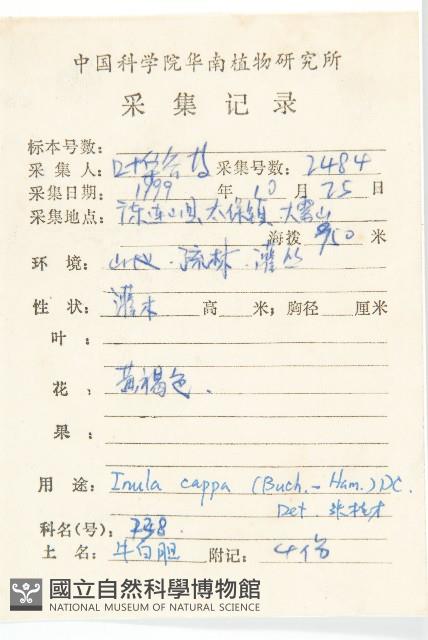 中国科学院华南植物研究所
采集记录
标本号数:
采集人: 叶华谷 采集号数: 2484
采集日期: 1999 年 10 月 25 日
采集地点: 连山县太保镇大雾山
海拨 950 米
环境: 山坡.疏林.灌丛
性状: 灌木 高 米; 胸径 厘米
叶:
花, 黄褐色.
果:
用途: Inula cappa (Buch.-Ham.) DC.
Det. 张桂才
科名(号): 238.
土名: 牛白胆 附记: 4份
國立自然科學博物館
NATIONAL MUSEUM OF NATURAL SCIENCE